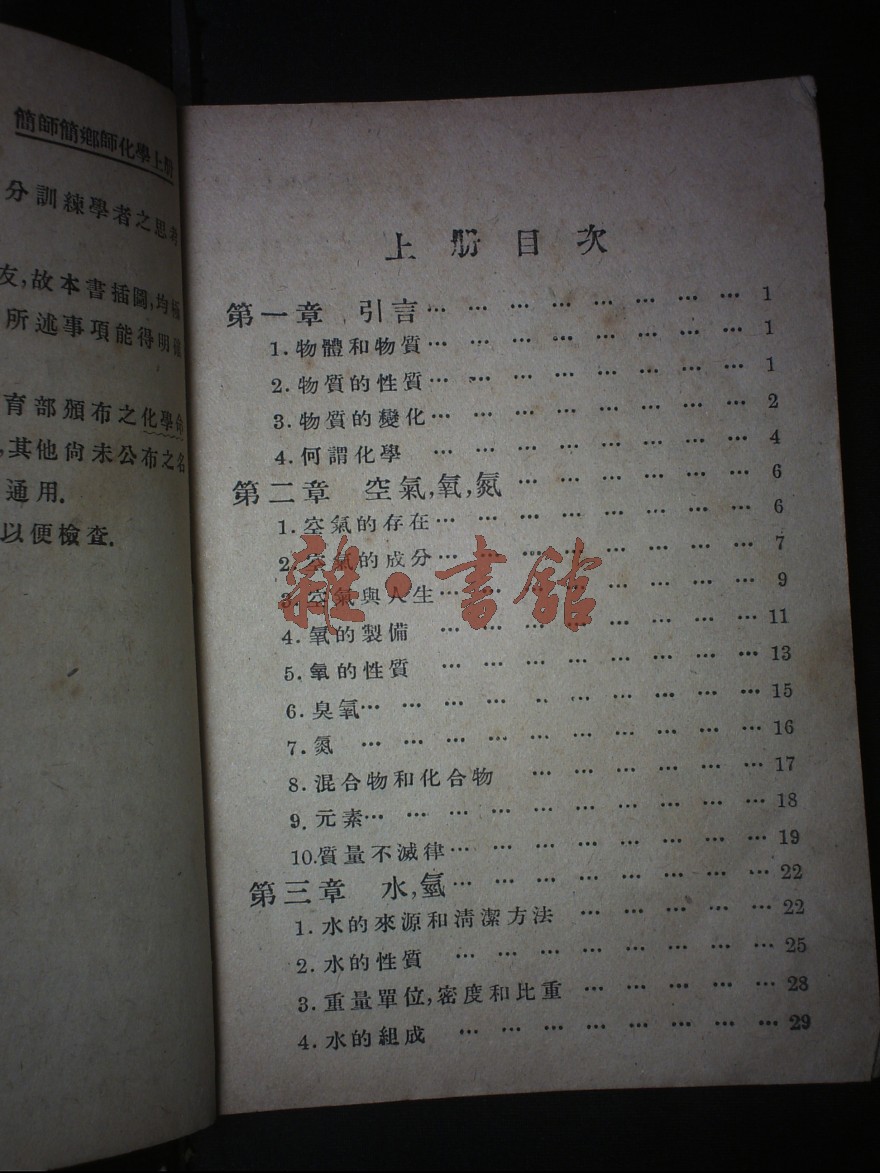 簡師簡鄉師化學上册
分訓練學者之思考
友,故本書插圖,均極
所述事項能得明確
育部頒布之化學命
,其他尙未公布之名
通用.
以便檢查.
上册目次
第一章 引言… … … … … … … … 1
1.物體和物質… … … … … … … … 1
2.物質的性質… … … … … … … … 1
3.物質的變化… … … … … … … … 2
4.何謂化學 … … … … … … … … 4
第二章 空氣,氧,氮 … … … … … … 6
1.空氣的存在… … … … … … … … 6
2.空氣的成分… … … … … … … … 7
3.空氣與人生… … … … … … … … 9
4.氧的製備 … … … … … … … … 11
5.氧的性質 … … … … … … … … 13
6.臭氧… … … … … … … … … … 15
7.氮 … … … … … … … … … … 16
8.混合物和化合物 … … … … … … 17
9.元素… … … … … … … … … … 18
10.質量不滅律… … … … … … … … 19
第三章 水,氫… … … … … … … … 22
1.水的來源和清潔方法 … … … … … 22
2.水的性質 … … … … … … … … 25
3.重量單位,密度和比重 … … … … … 28
4.水的組成 … … … … … … … … 29
雜·書館